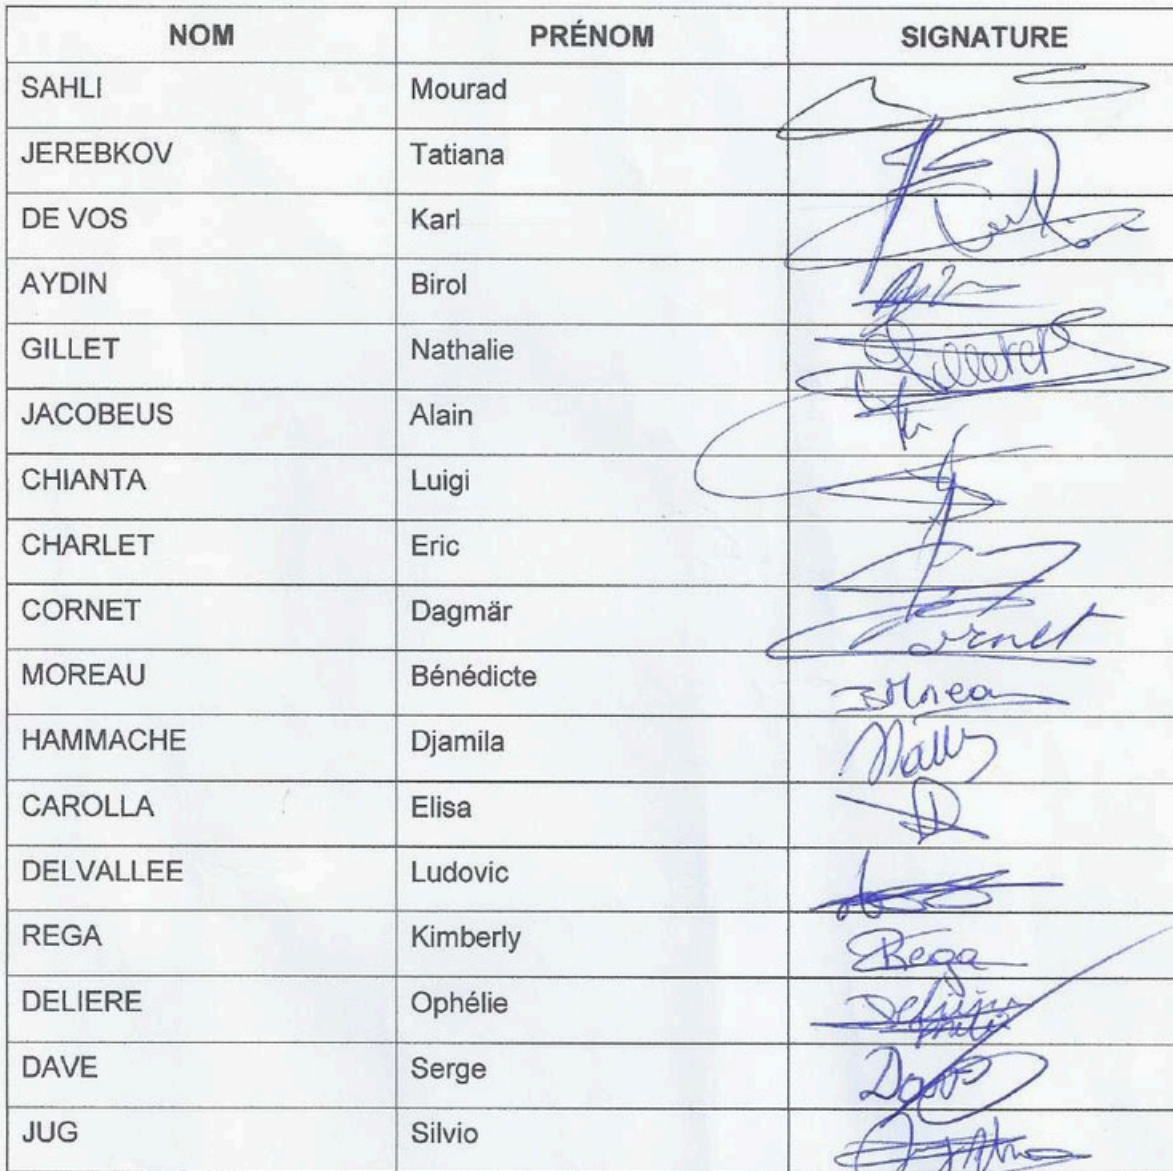 NOM PRÉNOM SIGNATURE
SAHLI Mourad
JEREBKOV Tatiana
DE VOS Karl
AYDIN Birol
GILLET Nathalie
JACOBEUS Alain
CHIANTA Luigi
CHARLET Eric
CORNET Dagmär Cornet
MOREAU Bénédicte
HAMMACHE Djamila
CAROLLA Elisa
DELVALLEE Ludovic
REGA Kimberly Rega
DELIERE Ophélie
DAVE Serge
JUG Silvio